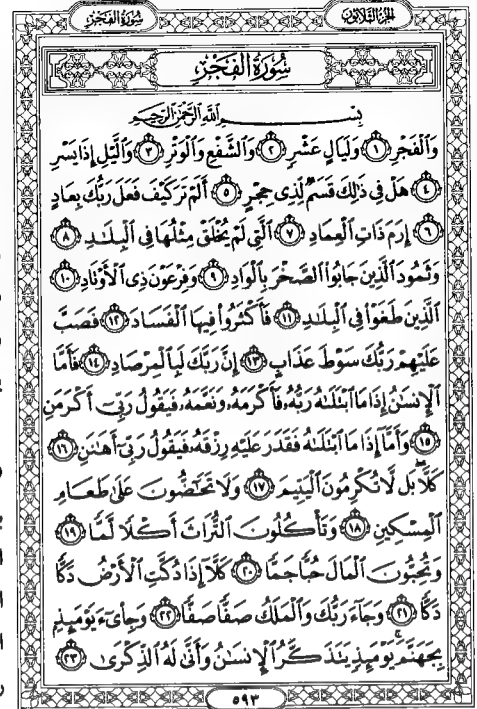 سُورَةُ الفَجْرِ
الجُزْءُ الثَّلَاثُونَ
سُورَةُ الْفَجْرِ
بِسْمِ ٱللَّهِ ٱلرَّحْمَٰنِ ٱلرَّحِيمِ
وَٱلْفَجْرِ ١ وَلَيَالٍ عَشْرٍ ٢ وَٱلشَّفْعِ وَٱلْوَتْرِ ٣ وَٱلَّيْلِ إِذَا يَسْرِ
٤ هَلْ فِي ذَٰلِكَ قَسَمٌ لِّذِي حِجْرٍ ٥ أَلَمْ تَرَ كَيْفَ فَعَلَ رَبُّكَ بِعَادٍ
٦ إِرَمَ ذَاتِ ٱلْعِمَادِ ٧ ٱلَّتِي لَمْ يُخْلَقْ مِثْلُهَا فِي ٱلْبِلَٰدِ ٨
وَثَمُودَ ٱلَّذِينَ جَابُوا۟ ٱلصَّخْرَ بِٱلْوَادِ ٩ وَفِرْعَوْنَ ذِي ٱلْأَوْتَادِ ١٠
ٱلَّذِينَ طَغَوْا۟ فِي ٱلْبِلَٰدِ ١١ فَأَكْثَرُوا۟ فِيهَا ٱلْفَسَادَ ١٢ فَصَبَّ
عَلَيْهِمْ رَبُّكَ سَوْطَ عَذَابٍ ١٣ إِنَّ رَبَّكَ لَبِٱلْمِرْصَادِ ١٤ فَأَمَّا
ٱلْإِنسَٰنُ إِذَا مَا ٱبْتَلَىٰهُ رَبُّهُۥ فَأَكْرَمَهُۥ وَنَعَّمَهُۥ فَيَقُولُ رَبِّىٓ أَكْرَمَنِ
١٥ وَأَمَّآ إِذَا مَا ٱبْتَلَىٰهُ فَقَدَرَ عَلَيْهِ رِزْقَهُۥ فَيَقُولُ رَبِّىٓ أَهَٰنَنِ ١٦
كَلَّا ۖ بَل لَّا تُكْرِمُونَ ٱلْيَتِيمَ ١٧ وَلَا تَحَٰٓضُّونَ عَلَىٰ طَعَامِ
ٱلْمِسْكِينِ ١٨ وَتَأْكُلُونَ ٱلتُّرَاثَ أَكْلًا لَّمًّا ١٩
وَتُحِبُّونَ ٱلْمَالَ حُبًّا جَمًّا ٢٠ كَلَّآ إِذَا دُكَّتِ ٱلْأَرْضُ دَكًّا
دَكًّا ٢١ وَجَآءَ رَبُّكَ وَٱلْمَلَكُ صَفًّا صَفًّا ٢٢ وَجِا۟ىٓءَ يَوْمَئِذٍۭ
بِجَهَنَّمَ ۚ يَوْمَئِذٍ يَتَذَكَّرُ ٱلْإِنسَٰنُ وَأَنَّىٰ لَهُ ٱلذِّكْرَىٰ ٢٣
٥٩٣